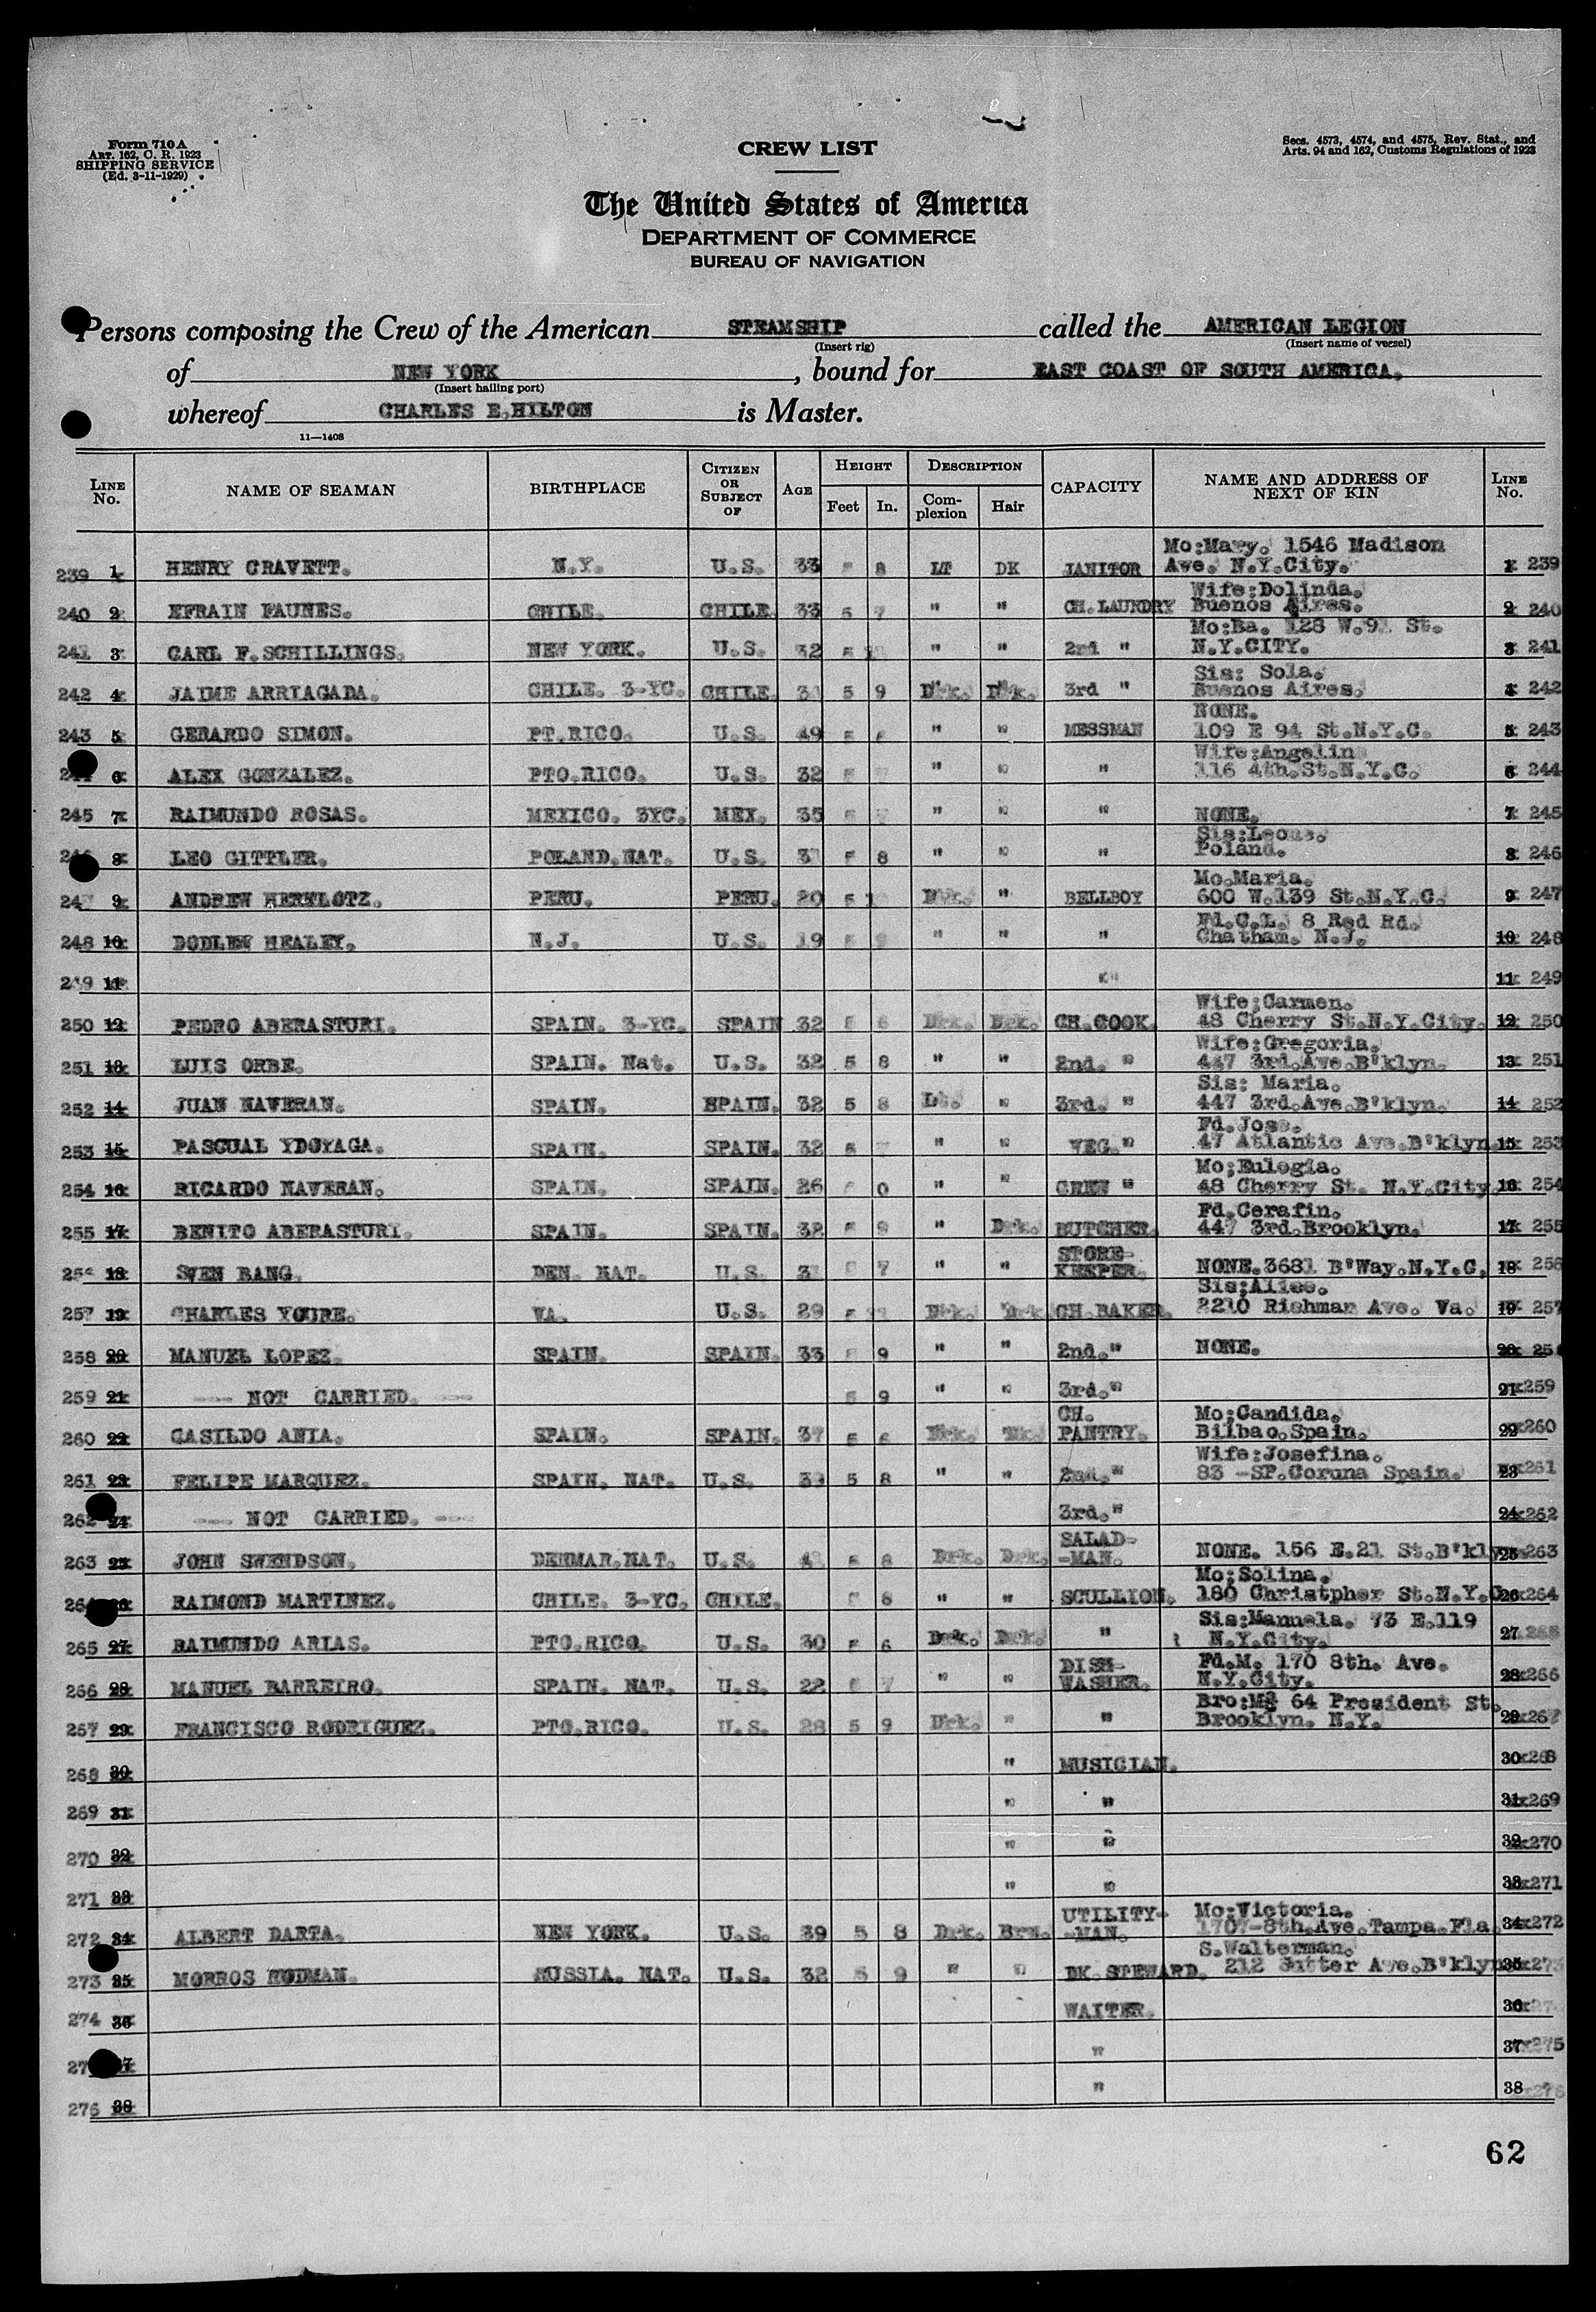 Form 710A
ART. 162, C. R. 1923
SHIPPING SERVICE
(Ed. 3-11-1929)
CREW LIST
Secs. 4573, 4574, and 4575, Rev. Stat., and
Arts. 94 and 162, Customs Regulations of 1923
The United States of America
DEPARTMENT OF COMMERCE
BUREAU OF NAVIGATION
Persons composing the Crew of the American STEAMSHIP called the AMERICAN LEGION
(Insert rig) (Insert name of vessel)
of NEW YORK, bound for EAST COAST OF SOUTH AMERICA.
(Insert hailing port)
whereof CHARLES E.HILTON is Master.
11—1408
LINE No. NAME OF SEAMAN BIRTHPLACE CITIZEN OR SUBJECT OF AGE HEIGHT Feet In. DESCRIPTION Complexion Hair CAPACITY NAME AND ADDRESS OF NEXT OF KIN LINE No.
239 1 HENRY GRAVETT. N.Y. U.S. 33 8 LT DK JANITOR Mo:Mary. 1546 Madison Ave. N.Y.City. 1 239
240 2 EFRAIN FAUNES. CHILE. CHILE. 33 5 7 " " CH.LAUNDRY Wife:Dolinda. Buenos Aires. 2 240
241 3 CARL F.SCHILLINGS. NEW YORK. U.S. 32 " " 2nd " Mo:Ba. 128 W.9 St. N.Y.CITY. 3 241
242 4 JAIME ARRIAGADA. CHILE. 3-YC. CHILE. 5 9 Drk. Drk. 3rd " Sis: Sola. Buenos Aires. 4 242
243 5 GERARDO SIMON. PT.RICO. U.S. 49 " " MESSMAN NONE. 109 E 94 St.N.Y.C. 5 243
6 ALEX GONZALEZ. PTO.RICO. U.S. 32 " " " Wife:Angelin 116 4th.St.N.Y.C. 6 244
245 7 RAIMUNDO ROSAS. MEXICO. 3YC. MEX. 35 " " " NONE. 7 245
8 LEO GITTLER. POLAND.NAT. U.S. 8 " " " Sis:Leone. Poland. 8 246
9 ANDREW HERKLOTZ. PERU. PERU. 20 5 Drk. " BELLBOY Mo.Maria. 600 W.139 St.N.Y.C. 9 247
248 10 DODLEW HEALEY. N.J. U.S. 19 " " " Fd.C.L. 8 Red Rd. Chatham. N.J. 10 248
249 11 " 11 249
250 12 PEDRO ABERASTURI. SPAIN. 3-YC. SPAIN 32 Drk. Drk. CH.COOK. Wife:Carmen. 48 Cherry St.N.Y.City. 12 250
251 13 LUIS ORBE. SPAIN. Nat. U.S. 32 5 8 " " 2nd. " Wife:Gregoria. 447 3rd.Ave.B'klyn. 13 251
252 14 JUAN NAVERAN. SPAIN. SPAIN. 32 5 8 Lt. " 3rd. " Sis: Maria. 447 3rd.Ave.B'klyn. 14 252
253 15 PASCUAL YDOYAGA. SPAIN. SPAIN. 32 5 7 " " VEG." Fd.Jose. 47 Atlantic Ave.B'klyn. 15 253
254 16 RICARDO NAVERAN. SPAIN. SPAIN. 26 0 " " CREW " Mo;Eulogia. 48 Cherry St. N.Y.City. 16 254
255 17 BENITO ABERASTURI. SPAIN. SPAIN. 32 9 " Drk. BUTCHER. Fd.Cerafin. 447 3rd.Brooklyn. 17 255
18 SVEN BANG. DEN. NAT. U.S. 7 " " STORE-KEEPER. NONE.3681 B'Way.N.Y.C. 18 256
257 19 CHARLES YOURE. VA. U.S. 29 Drk. Drk. CH.BAKER. Sis;Alice. 2210 Richman Ave. Va. 19 257
258 20 MANUEL LOPEZ. SPAIN. SPAIN. 33 9 " " 2nd." NONE. 20 25
259 21 --- NOT CARRIED. --- 9 " " 3rd." 21 259
260 22 CASILDO ANIA. SPAIN. SPAIN. 37 5 6 Drk. Drk. CH. PANTRY. Mo;Candida. Bilbao.Spain. 22 260
261 23 FELIPE MARQUEZ. SPAIN. NAT. U.S. 5 8 " " 2nd." Wife:Josefina. 83 -SP.Coruna Spain. 23 261
262 24 --- NOT CARRIED. --- 3rd." 24 262
263 25 JOHN SWENDSON. DENMAR.NAT. U.S. 8 Drk. Drk. SALAD--MAN. NONE. 156 E.21 St.B'klyn. 25 263
26 RAIMOND MARTINEZ. CHILE. 3-YC. CHILE. 8 " " SCULLION. Mo:Solina. 180 Christpher St.N.Y.C. 26 264
265 27 RAIMUNDO ARIAS. PTO.RICO. U.S. 30 6 Drk. Drk. " Sis:Manuela. 73 E.119 N.Y.City. 27 265
266 28 MANUEL BARREIRO. SPAIN. NAT. U.S. 22 7 " " DISH-WASHER. Fd.M. 170 8th. Ave. N.Y.City. 28 266
267 29 FRANCISCO RODRIGUEZ. PTO.RICO. U.S. 28 5 9 Drk. " " Bro: 64 President St. Brooklyn. N.Y. 29 267
268 30 " MUSICIAN. 30 268
269 31 " " 31 269
270 32 " " 32 270
271 33 " " 33 271
272 34 ALBERT DARTA. NEW YORK. U.S. 39 5 8 Drk. Brn. UTILITY--MAN. Mo:Victoria. 1707-8th.Ave.Tampa.Fla. 34 272
273 35 MORROS RODMAN. RUSSIA. NAT. U.S. 32 5 9 " " DK.STEWARD. S.Walterman. 212 Sutter Ave.B'klyn. 35 273
274 36 WAITER. 36
37 " 37 275
276 38 " 38 276
62